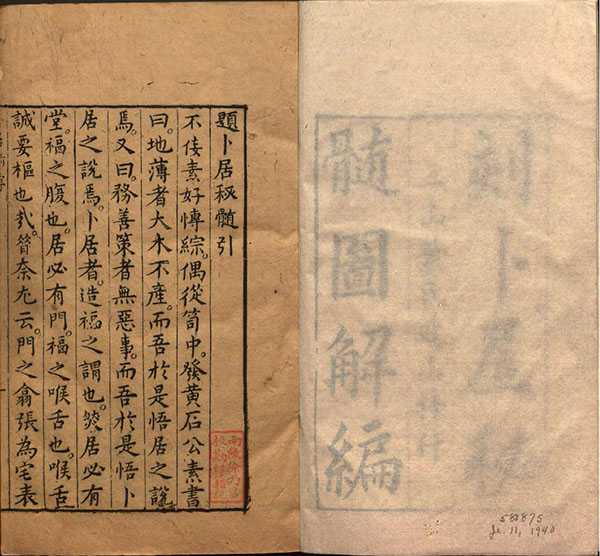 卜居
髓圖解編
582875
Je. 11, 1940
題卜居秘髓引
不佞素好博綜。偶從笥中。發黃石公素書
曰。地薄者大木不產。而吾於是悟居之說
焉。又曰。務善策者無惡事。而吾於是悟卜
居之說焉。卜居者。造福之謂也。然居必有
堂。福之腹也。居必有門。福之喉舌也。喉舌
誠要樞也云。門之翕張為宅表